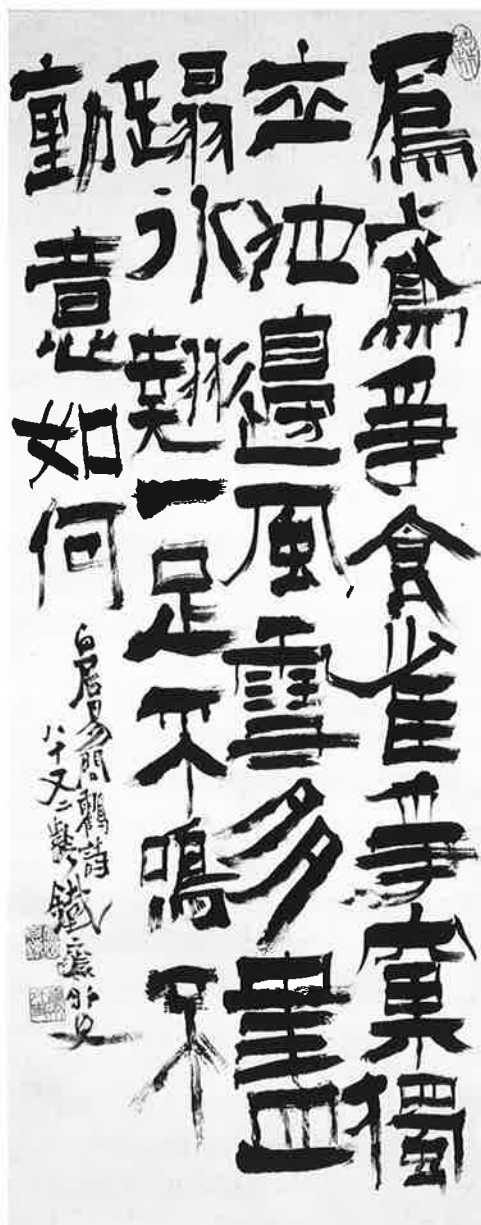 烏鳶爭食雀爭窠獨
立池邊風雪多盡
蹋冰翹一足不鳴不
動意如何
白居易問鶴詩
八十又二齡鐵齋外史